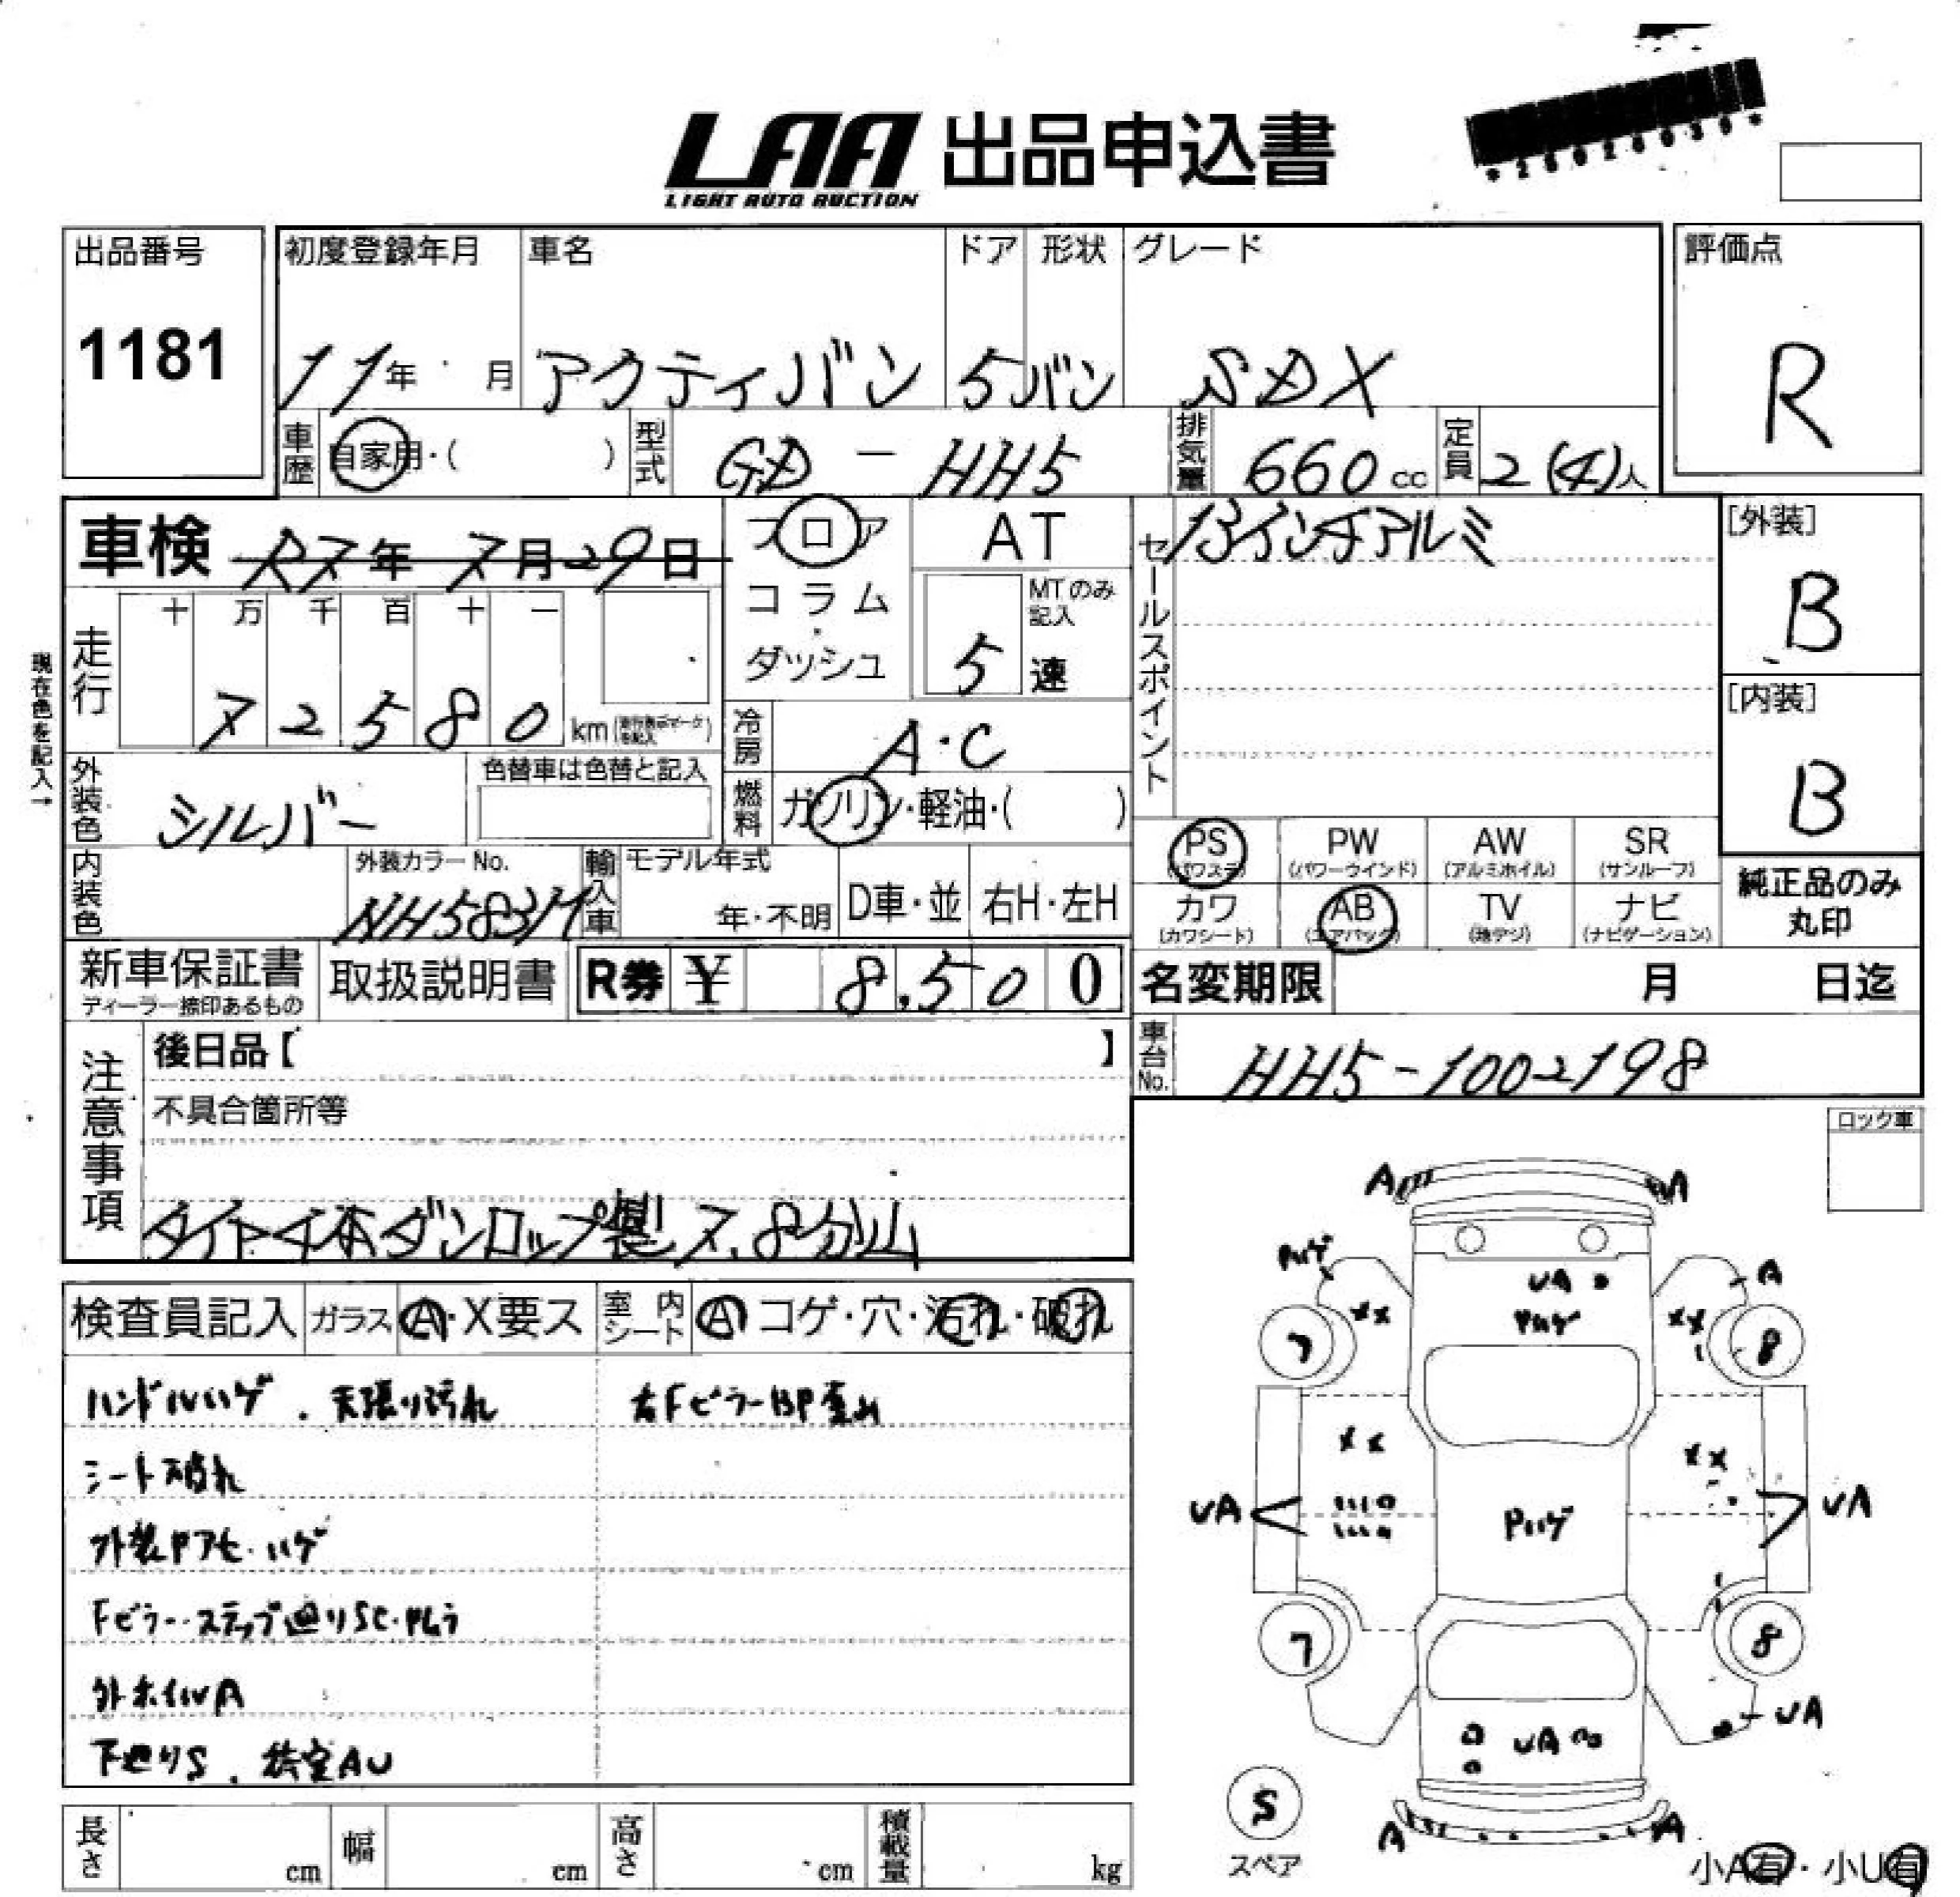 LAA 出品申込書
LIGHT AUTO AUCTION
出品番号
1181
初度登録年月 車名 ドア 形状 グレード
11年 月 アクティバン 5 バン SDX
評価点
R
車歴 自家用・( ) 型式 GD - HH5 排気量 660cc 定員 2(4)人
車検 R7年 7月 29日
フロア
コラム
ダッシュ
AT
MTのみ記入
5 速
セールスポイント
13インチアルミ
[外装]
B
[内装]
B
現在色を記入→
走行
十 万 千 百 十 一
7 2 5 8 0 km
冷房 A・C
外装色 シルバー
色替車は色替と記入
燃料 ガソリン・軽油・( )
PS PW AW SR
(パワステ) (パワーウインド) (アルミホイル) (サンルーフ)
カワ AB TV ナビ
(カワシート) (エアバック) (地デジ) (ナビゲーション)
純正品のみ
丸印
内装色
外装カラーNo.
NH583M
輸入車
モデル年式
年・不明 D車・並 右H・左H
新車保証書
ディーラー捺印あるもの
取扱説明書
R券 ¥ 8,500
名変期限 月 日迄
車台No. HH5-1002198
注意事項
後日品【 】
不具合箇所等
タイヤ4本ダンロップ製 7.8分山
ロック車
検査員記入 ガラス A・X要ス 室内シート A コゲ・穴・汚れ・破れ
ハンドルハゲ . 天張り汚れ
右FピラーBP歪み
シート破れ
外装Pアセ・ハゲ
Fピラー・ステップ廻りSC・Pムラ
外ホイルA
下廻りS . 荷室AU
A A
Pハゲ UA A
XX Pハゲ XX
7 8
XX XX
UA Pハゲ UA
7 8
UA UA
S
スペア
A A
小A有・小U有
長さ cm 幅 cm 高さ cm 積載量 kg